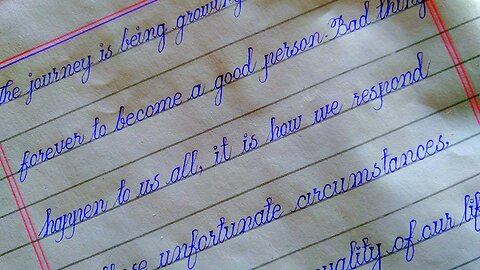 The journey is being growing
forever to become a good person. Bad thing
happen to us all, it is how we respond
unfortunate circumstances.
quality of our lif